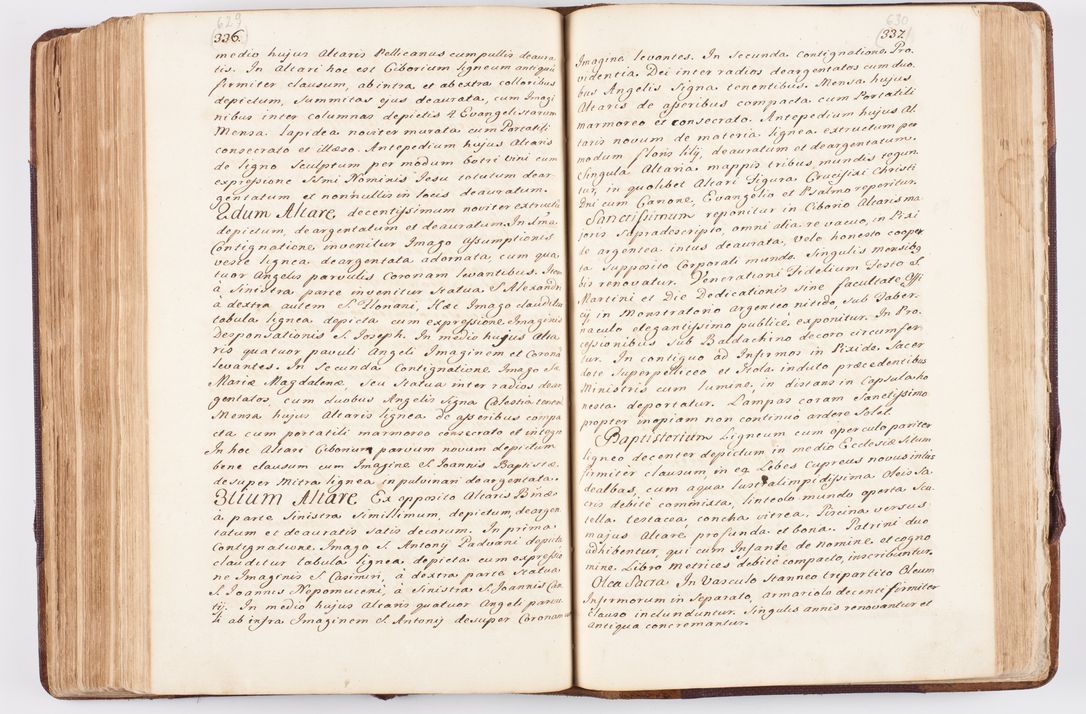 629
336.
medio hujus Altaris Pellicanus cum pullis deaura
tis. In Altari hoc est Ciborium ligneum antiquũ
firmiter clausum, ab intra et ab extra colloribus
depictum, summitas ejus deaurata, cum Imagi
nibus inter columnas depictis 4 Evangelistarum
Mensa lapidea noviter murata cum Portatili
consecrato et illæso. Antepedium hujus Altaris
de ligno sculptum per modum botri vini cum
expressione SSmi Nominis Jesu totutum dear-
gentatum et nonnullis in locis deauratum.
2dum Altare, decentissimum noviter extructũ
depictum, deargentatum et deauratum. In Ima
Contignatione, invenitur Imago Assumptionis
veste lignea deargentata adornata, cum qua
tuor Angelis parvulis Coronam levantibus. Item
à sinistra parte invenitur Statua S. Alexandri
à dextra autem S. Floriani, Hæc Imago clauditur
tabula lignea depicta cum expressione Imaginis
Desponsationis S. Joseph. In medio hujus Alta
ris quatuor pavuli Angeli Imaginem et Coronã
levantes. In Secunda Contignatione Imago Sæ
Mariæ Magdalenæ, Seu Statua inter radios dear
gentatos, cum duobus Angelis signa Cælestia tenen
Mensa hujus Altaris lignea de asseribus compa
cta cum portatili marmoreo consecrato et integro
In hoc Altari Ciborium parvum novum depictum
bene clausum cum Imagine S. Joannis Baptistæ
desuper Mitra lignea in pulvinari deargentata.
3tium Altare. Ex opposito Altaris B
à parte sinistra simillimum, depictum, deargen
tatum et deauratis satis decorum. In prima
Contignatione. Imago S. Antonij Paduani depicta
clauditur tabula lignea, depicta cum expressio
ne Imaginis S. Casimiri, à dextra parte Statua
S. Joannis Nepomuceni, à Sinistra S. Joannis Can
tij. In medio hujus Altaris quatuor Angeli parvu
li ab infra Imaginem S. Antonij desuper Coronam
630
337.
Imagine levantes. In secunda contignatione Pro
videntia Dei inter radios deargentatos cum duo
bus Angelis Signa tenentibus. Mensa hujus
Altaris de asseribus compacta cum Portatili
marmoreo et consecrato. Antepedium hujus Al
taris novum de materia lignea extructum per
modum floris lilij, deauratum et deargentatum.
Singula Altaria mappis tribus mundis tegun
tur, in quolibet Altari Figura Crucifixi Christi
Dni cum Canone, Evangelia et Psalmo reperitur.
Sanctissimum reponitur in Ciborio Altaris ma
joris supradescripto, omni alia re vacuo, in Pixi
de argentea intus deaurata, velo honesto cooper
ta supposito Corporali mundo. Singulis mensibus
bis renovatur. Venerationi Fidelium Festo S.
Martini et Die Dedicationis sine facultate Offi
cij in Monstratorio argenteo nitido, sub Taber
naculo elegantissimo publicè exponitur. In Pro
cessionibus sub Baldachino decoro circumfer
tur. In contiguo ad Infirmos in Pixide, Sacer
dote Superpelliceo et Stola induto præcedentibus
Ministris cum lumine, in distans in Capsula ho
nesta deportatur. Lampas coram Sanctissimo
propter inopiam non continuò ardere Solet.
Baptisterium Ligneum cum operculo pariter
ligneo decenter depictum in medio Ecclesiæ situm
firmiter clausum, in eo Lebes Cupreus novus intus
dealbas, cum aqua lustrali limpidissima Oleis Sa
cris debitè commista, linteolo mundo operta Scu
tella testacea, concha vitrea, Piscina versus
majus Altare profunda et bona. Patrini duo
adhibentur, qui cum Infante de nomine et cogno
mine Libro metrices debitè compacto, inscribuntur.
Olea Sacra In Vasculo stanneo tripartito Oleum
Infirmorum in Separato, armariolo decenti firmiter
clauso includuntur. Singulis annis renovantur et
antiqua concremantur.